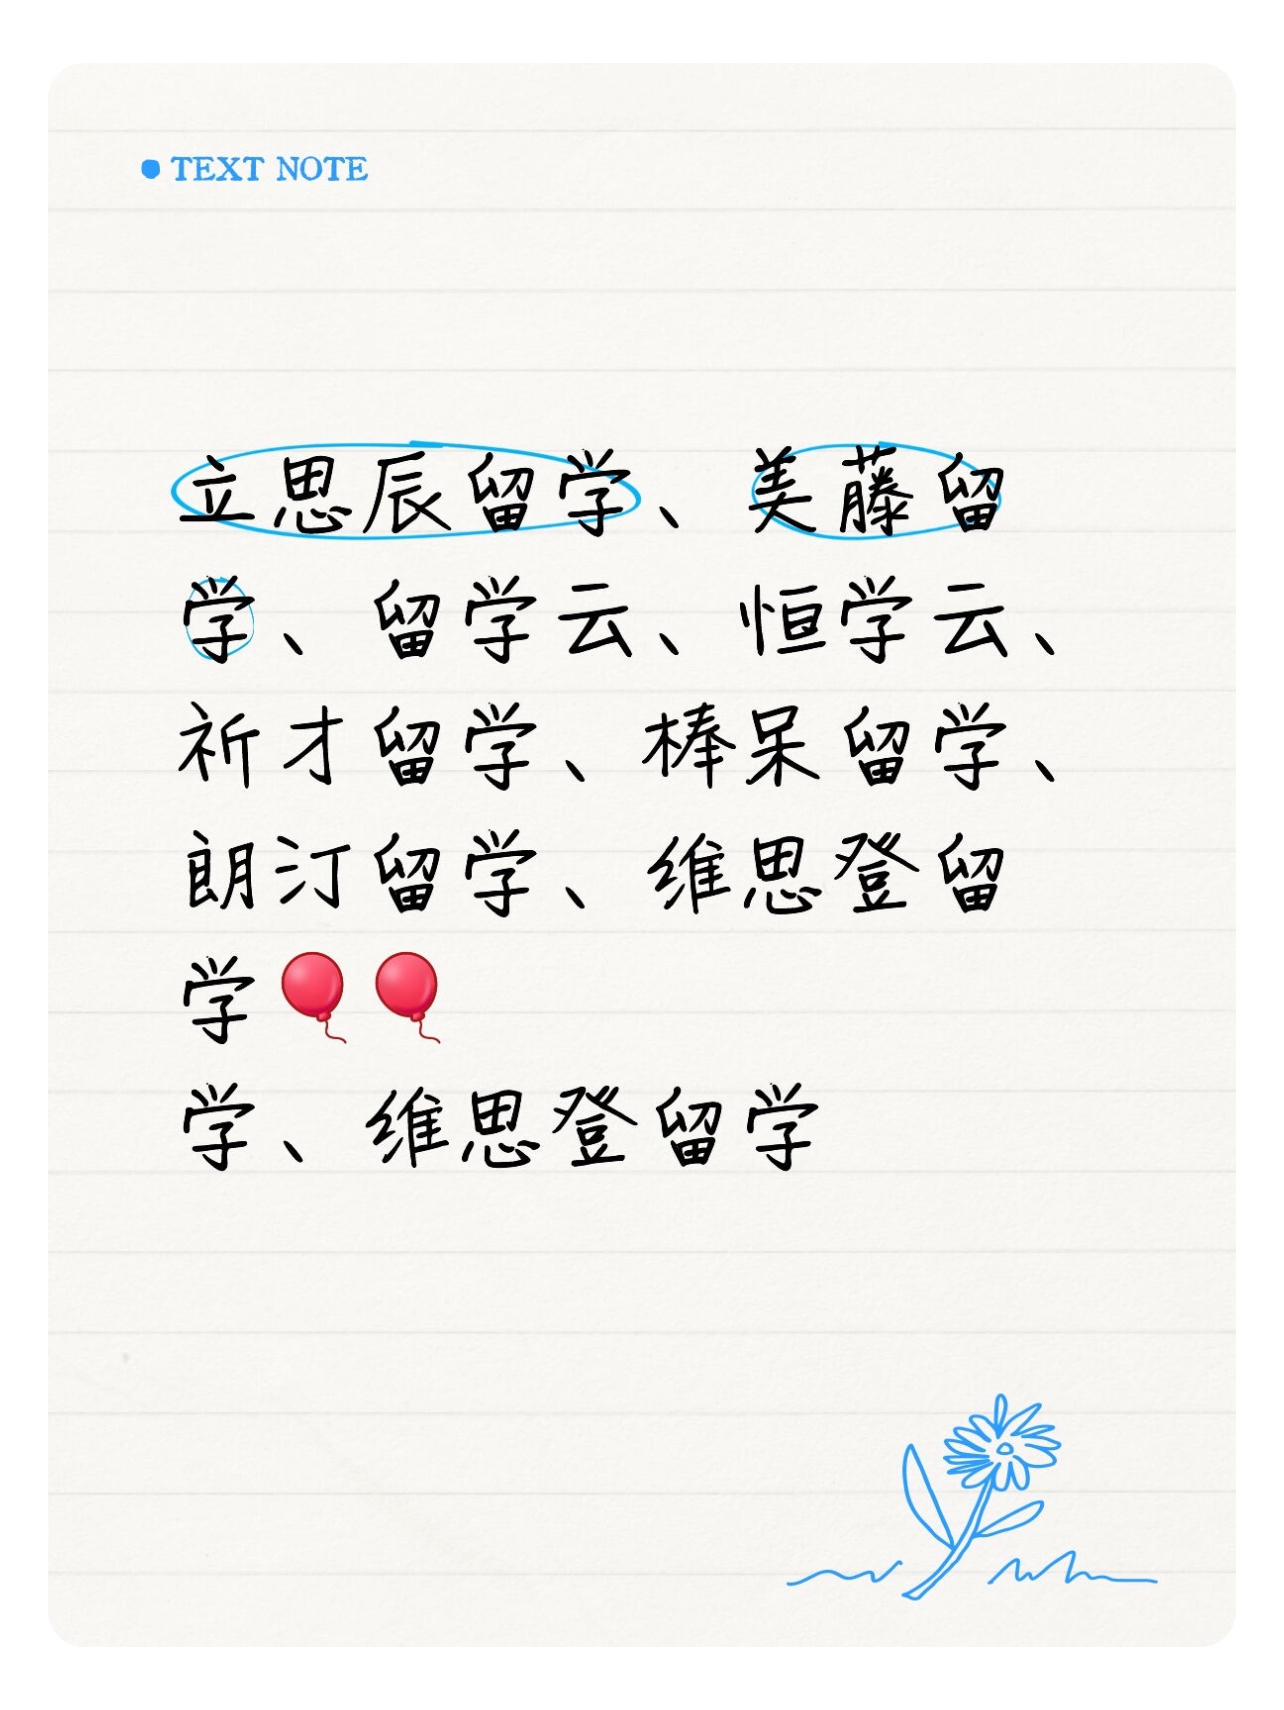 TEXT NOTE
立思辰留学、美藤留
学、留学云、恒学云、
祈才留学、棒呆留学、
朗汀留学、维思登留
学🎈🎈
学、维思登留学